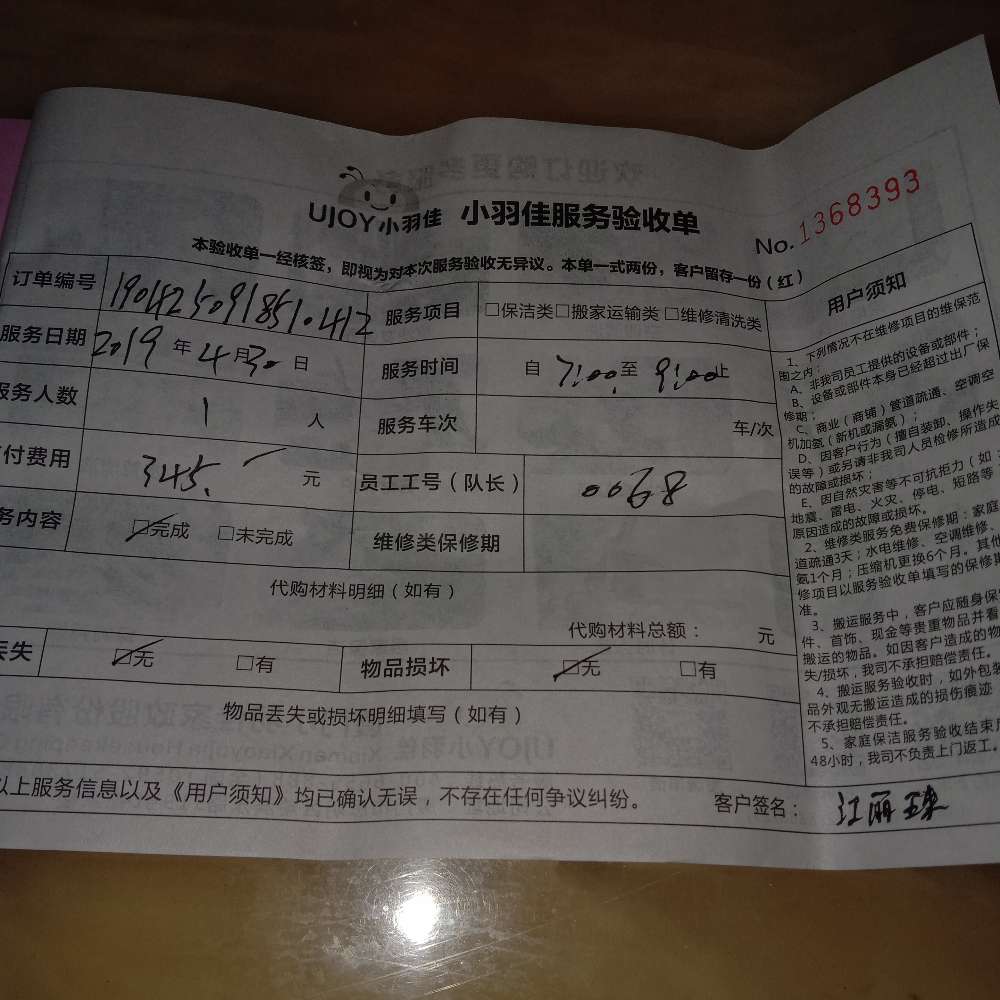 UJOY小羽佳 小羽佳服务验收单
No.1368393
本验收单一经核签，即视为对本次服务验收无异议。本单一式两份，客户留存一份（红）
订单编号 1904250918510412 服务项目 □保洁类□搬家运输类□维修清洗类
服务日期 2019年4月30日 服务时间 自7:00至9:00止
服务人数 1人 服务车次 车/次
付费用 345.元 员工工号（队长） 0068
务内容 □完成 □未完成 维修类保修期
代购材料明细（如有）
代购材料总额： 元
丢失 □无 □有 物品损坏 □无 □有
物品丢失或损坏明细填写（如有）
以上服务信息以及《用户须知》均已确认无误，不存在任何争议纠纷。 客户签名：江丽珠
用户须知
1、下列情况不在维修项目的维保范
围之内：
A、非我司员工提供的设备或部件；
B、设备或部件本身已经超过出厂保
修期；
C、商业（商铺）管道疏通、空调空
机加氨（新机或漏氨）；
D、因客户行为（擅自装卸、操作失
误等）或另请非我司人员检修所造成
的故障或损坏；
E、因自然灾害等不可抗拒力（如：
地震、雷电、火灾、停电、短路等
原因造成的故障或损坏。
2、维修类服务免费保修期：家庭
道疏通3天；水电维修、空调维修、
氨1个月；压缩机更换6个月。其他
修项目以服务验收单填写的保修期
准。
3、搬运服务中，客户应随身保
件、首饰、现金等贵重物品并看
搬运的物品。如因客户造成的物
失/损坏，我司不承担赔偿责任。
4、搬运服务验收时，如外包装
品外观无搬运造成的损伤痕迹
不承担赔偿责任。
5、家庭保洁服务验收结束后
48小时，我司不负责上门返工。